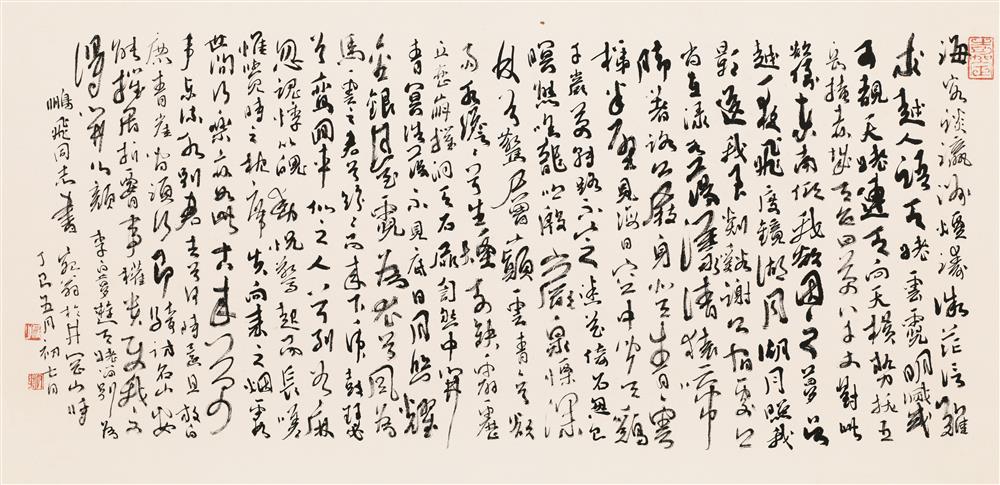 海客談瀛洲煙濤微茫信難
求越人語天姥雲霓明滅或
可覩天姥連天向天橫勢拔五
岳掩赤城天台四萬八千丈對此
欲倒東南傾我欲因之夢吳
越一夜飛度鏡湖月湖月照我
影送我至剡谿謝公宿處今
尚在淥水蕩漾清猿啼
腳著謝公屐身登青雲
梯半壁見海日空中聞天鷄
千巖萬轉路不定迷花倚石忽已
暝熊咆龍吟殷巖泉慄深
林兮驚層巔雲青青兮欲
雨水澹澹兮生煙列缺霹靂
丘巒崩摧洞天石扉訇然中開
青冥浩蕩不見底日月照耀
金銀臺霓為衣兮風為
馬雲之君兮紛紛而來下虎鼓瑟
兮鸞回車仙之人兮列如麻
忽魂悸以魄動怳驚起而長嗟
惟覺時之枕席失向來之煙霞
世間行樂亦如此古來萬
事東流水別君去兮何時還且放白
鹿青崖間須行即騎訪名山安
能摧眉折腰事權貴使我不
得開心顏 李白夢遊天姥吟留別 為
鵬飛同志書 於井岡山時
丁巳五月初七日